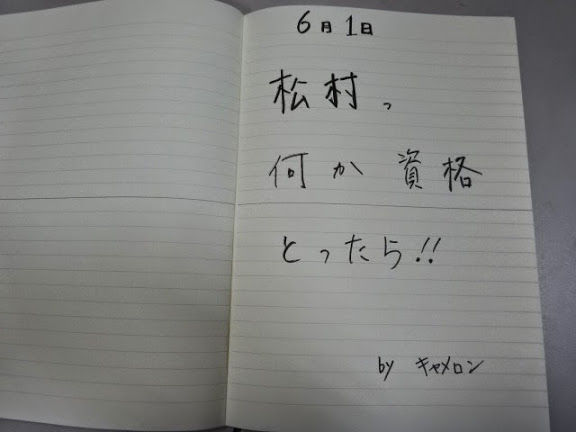 6月1日
松村っ
何か資格
とったら!!
by キャメロン